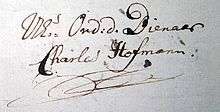 UEs Ord:d. Dienaar
Charles Hofmann.